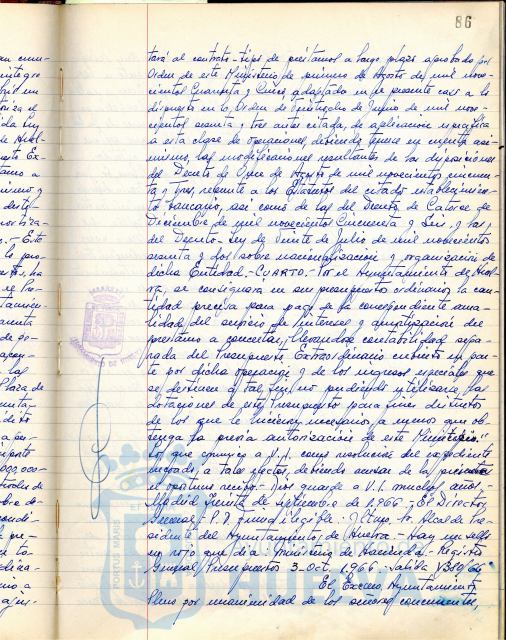 86
tará al contrato-tipo de préstamos a largo plazo aprobado por
Orden de este Ministerio de primero de Agosto de mil nove-
cientos Cuarenta y Cinco, adaptado en el presente caso a lo
dispuesto en la Orden de Veintiocho de Junio de mil nove-
cientos sesenta y tres antes citada, de aplicación específica
a esta clase de operaciones, debiendo tenerse en cuenta asi-
mismo, las modificaciones resultantes de las disposiciones
del Decreto de Once de Agosto de mil novecientos cincuen-
ta y tres, referente a los Estatutos del citado establecimien-
to bancario, así como de las del Decreto de Catorce de
Diciembre de mil novecientos Cincuenta y Seis, y las
del Decreto-Ley de Veinte de Julio de mil novecientos
sesenta y dos sobre nacionalización y organización de
dicha Entidad.- CUARTO.- Por el Ayuntamiento de Huel-
va, se consignará en su presupuesto ordinario la can-
tidad precisa para pago de la correspondiente anua-
lidad del servicio de intereses y amortización del
préstamo a concertar, llevándose contabilidad sepa-
rada del Presupuesto Extraordinario cubierto en par-
te por dicha operación y de los ingresos especiales que
se destinen a tal fin, no pudiendo utilizarse las
dotaciones de este Presupuesto para fines distintos
de los que le hicieron necesario, a menos que ob-
tenga la previa autorización de este Ministerio."
Lo que comunico a V.I. como resolución del expediente
incoado, a tales efectos, debiendo acusar de la presente
el oportuno recibo.- Dios guarde a V.I. muchos años.-
Madrid Treinta de septiembre de 1.966.- El Director
General.- P.D. firma ilegible.- Iltmo. Sr. Alcalde Pre-
sidente del Ayuntamiento de Huelva.- Hay un sello
en rojo que dice: Ministerio de Hacienda.- Registro
General, Presupuestos 3-Oct. 1966.- Salida
El Excmo. Ayuntamiento
Pleno por unanimidad de los señores concurrentes,